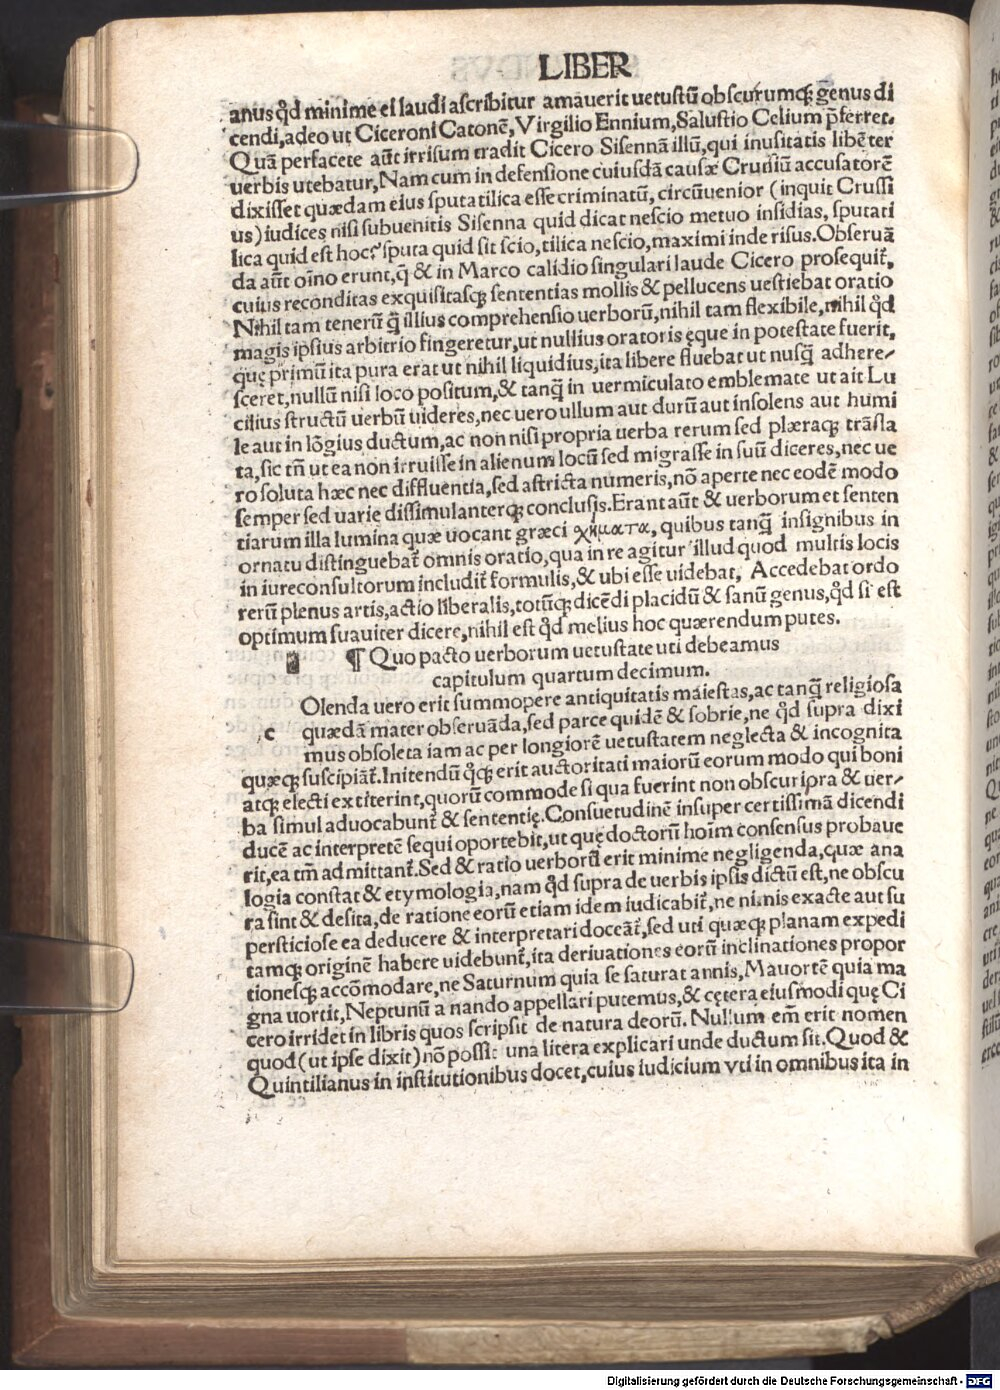 LIBER
anus qđ minime ei laudi ascribitur amauerit uetustũ obscurumq; genus di
cendi,adeo ut Ciceroni Catonẽ,Virgilio Ennium,Salustio Celium p̃ferret.
Quã perfacete aũt irrisum tradit Cicero Sisennã illũ,qui inusitatis libẽter
uerbis utebatur,Nam cum in defensione cuiusdã causæ Crusiũ accusatorẽ
dixisset quædam eius sputatilica esse criminatũ, circũuenior (inquit Crussi
us)iudices nisi subuenitis Sisenna quid dicat nescio metuo insidias, sputati
lica quid est hoc? sputa quid sit scio,tilica nescio,maximi inde risus.Obseruã
da aũt oĩno erunt,q̃ & in Marco calidio singulari laude Cicero prosequit̃,
cuius reconditas exquisitasq; sententias mollis & pellucens uestiebat oratio
Nihil tam tenerũ q̃ illius comprehensio uerborũ,nihil tam flexibile,nihil qđ
magis ipsius arbitrio fingeretur,ut nullius oratoris ęque in potestate fuerit,
quę primũ ita pura erat ut nihil liquidius,ita libere fluebat ut nusq̃ adhere/
sceret,nullũ nisi loco positum,& tanq̃ in uermiculato emblemate ut ait Lu
cilius structũ uerbũ uideres,nec uero ullum aut durũ aut insolens aut humi
le aut in lõgius ductum,ac non nisi propria uerba rerum sed plæraq; trãsla
ta,sic tñ ut ea non irruisse in alienum locũ sed migrasse in suũ diceres,nec ue
ro soluta hæc nec diffluentia,sed astricta numeris,nõ aperte nec eodẽ modo
semper sed uarie dissimulanterq; conclusis.Erant aũt & uerborum et senten
tiarum illa lumina quæ uocant græci χήματα, quibus tanq̃ insignibus in
ornatu distinguebat̃ omnis oratio,qua in re agitur illud quod multis locis
in iureconsultorum includit̃ formulis,& ubi esse uidebat, Accedebat ordo
rerũ plenus artis,actio liberalis,totũq; dicẽdi placidũ & sanũ genus,qđ si est
optimum suauiter dicere,nihil est qđ melius hoc quærendum putes.
¶ Quo pacto uerborum uetustate uti debeamus
capitulum quartum decimum.
Olenda uero erit summopere antiquitatis maiestas,ac tanq̃ religiosa
c quædã mater obseruãda,sed parce quidẽ & sobrie,ne qđ supra dixi
mus obsoleta iam ac per longiorẽ uetustatem neglecta & incognita
quæq; suscipiãt̃.Initendũ q̃q; erit auctoritati maiorũ eorum modo qui boni
atq; electi extiterint,quorũ commode si qua fuerint non obscuripra & uer/
ba simul aduocabunt̃ & sententię.Consuetudinẽ insuper certissimã dicendi
ducẽ ac interpretẽ sequi oportebit,ut quę doctorũ hoĩm consensus probaue
rit,ea tm̃ admittant̃.Sed & ratio uerborũ erit minime negligenda,quæ ana
logia constat & etymologia,nam qđ supra de uerbis ipsis dictũ est,ne obscu
ra sint & desita,de ratione eorũ etiam idem iudicabit̃,ne nimis exacte aut su
persticiose ea deducere & interpretari doceãt̃,sed uti quæq; planam expedi
tamq; originẽ habere uidebunt̃,ita deriuationes eorũ inclinationes propor
tionesq; accõmodare,ne Saturnum quia se saturat annis,Mauortẽ quia ma
gna uortit,Neptunũ a nando appellari putemus,& cętera eiusmodi quę Ci
cero irridet in libris quos scripsit de natura deorũ. Nullum em̃ erit nomen
quod(ut ipse dixit)nõ possit una litera explicari unde ductum sit.Quod &
Quintilianus in institutionibus docet,cuius iudicium vti in omnibus ita in
Digitalisierung gefördert durch die Deutsche Forschungsgemeinschaft - DFG